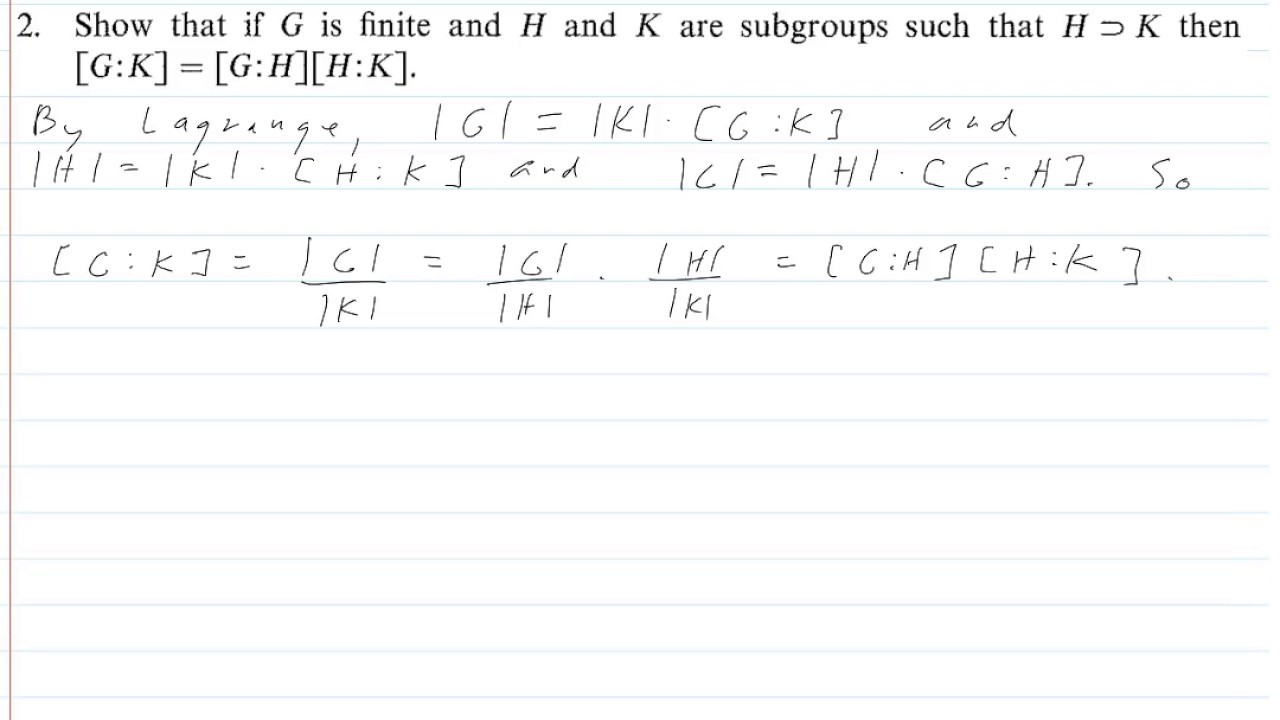 2. Show that if G is finite and H and K are subgroups such that H ⊃ K then
[G:K] = [G:H][H:K].
By Lagrange, |G| = |K| · [G:K] and
|H| = |K| · [H:K] and |G| = |H| · [G:H]. So
[G:K] = |G|/|K| = |G|/|H| · |H|/|K| = [G:H][H:K].